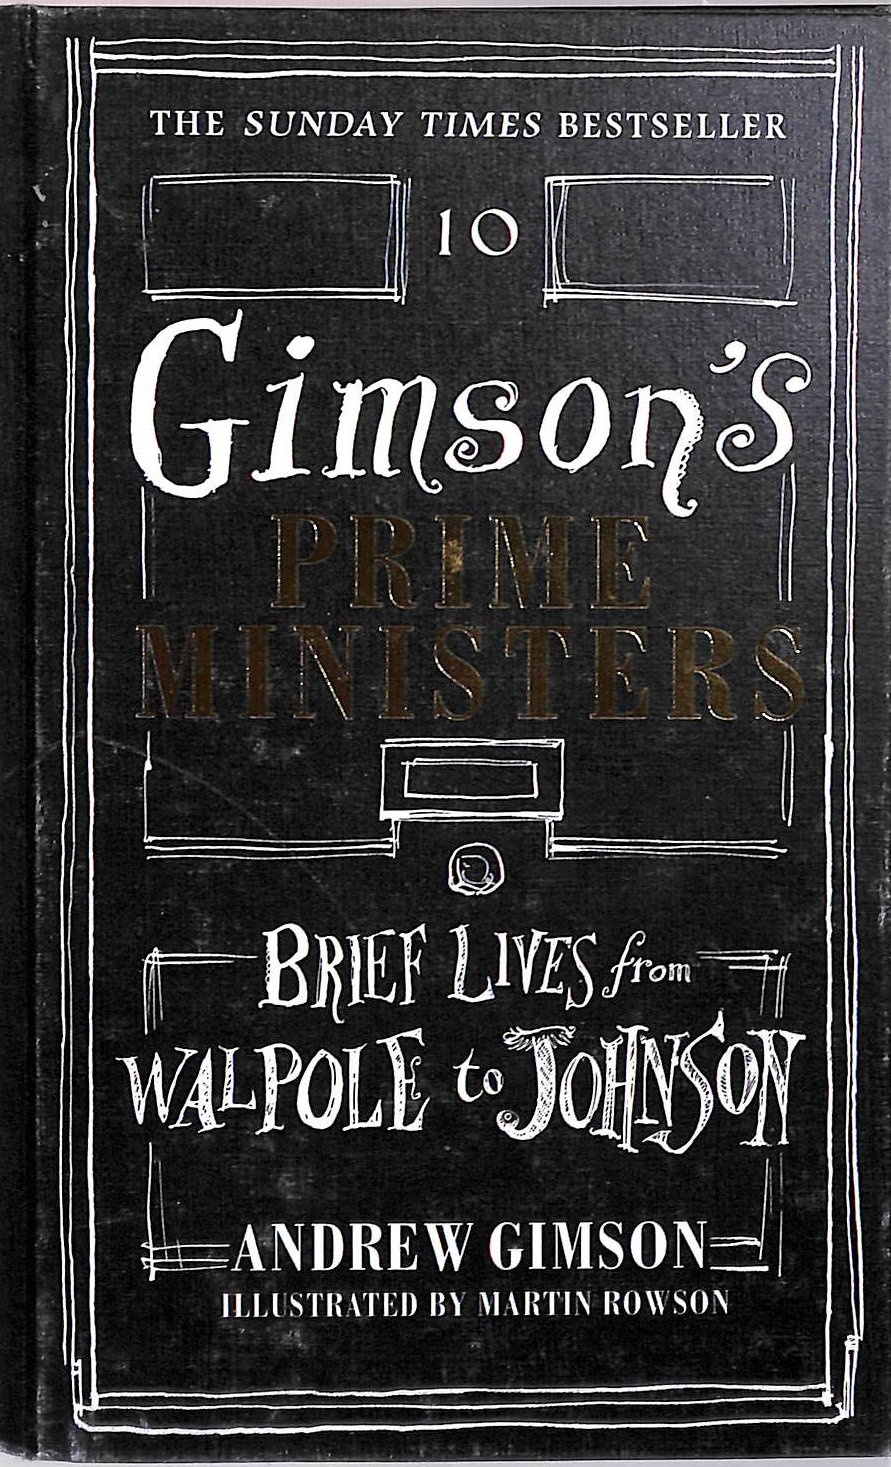 THE SUNDAY TIMES BESTSELLER
10
Gimson's
PRIME
MINISTERS
BRIEF LIVES from
WALPOLE to JOHNSON
ANDREW GIMSON
ILLUSTRATED BY MARTIN ROWSON